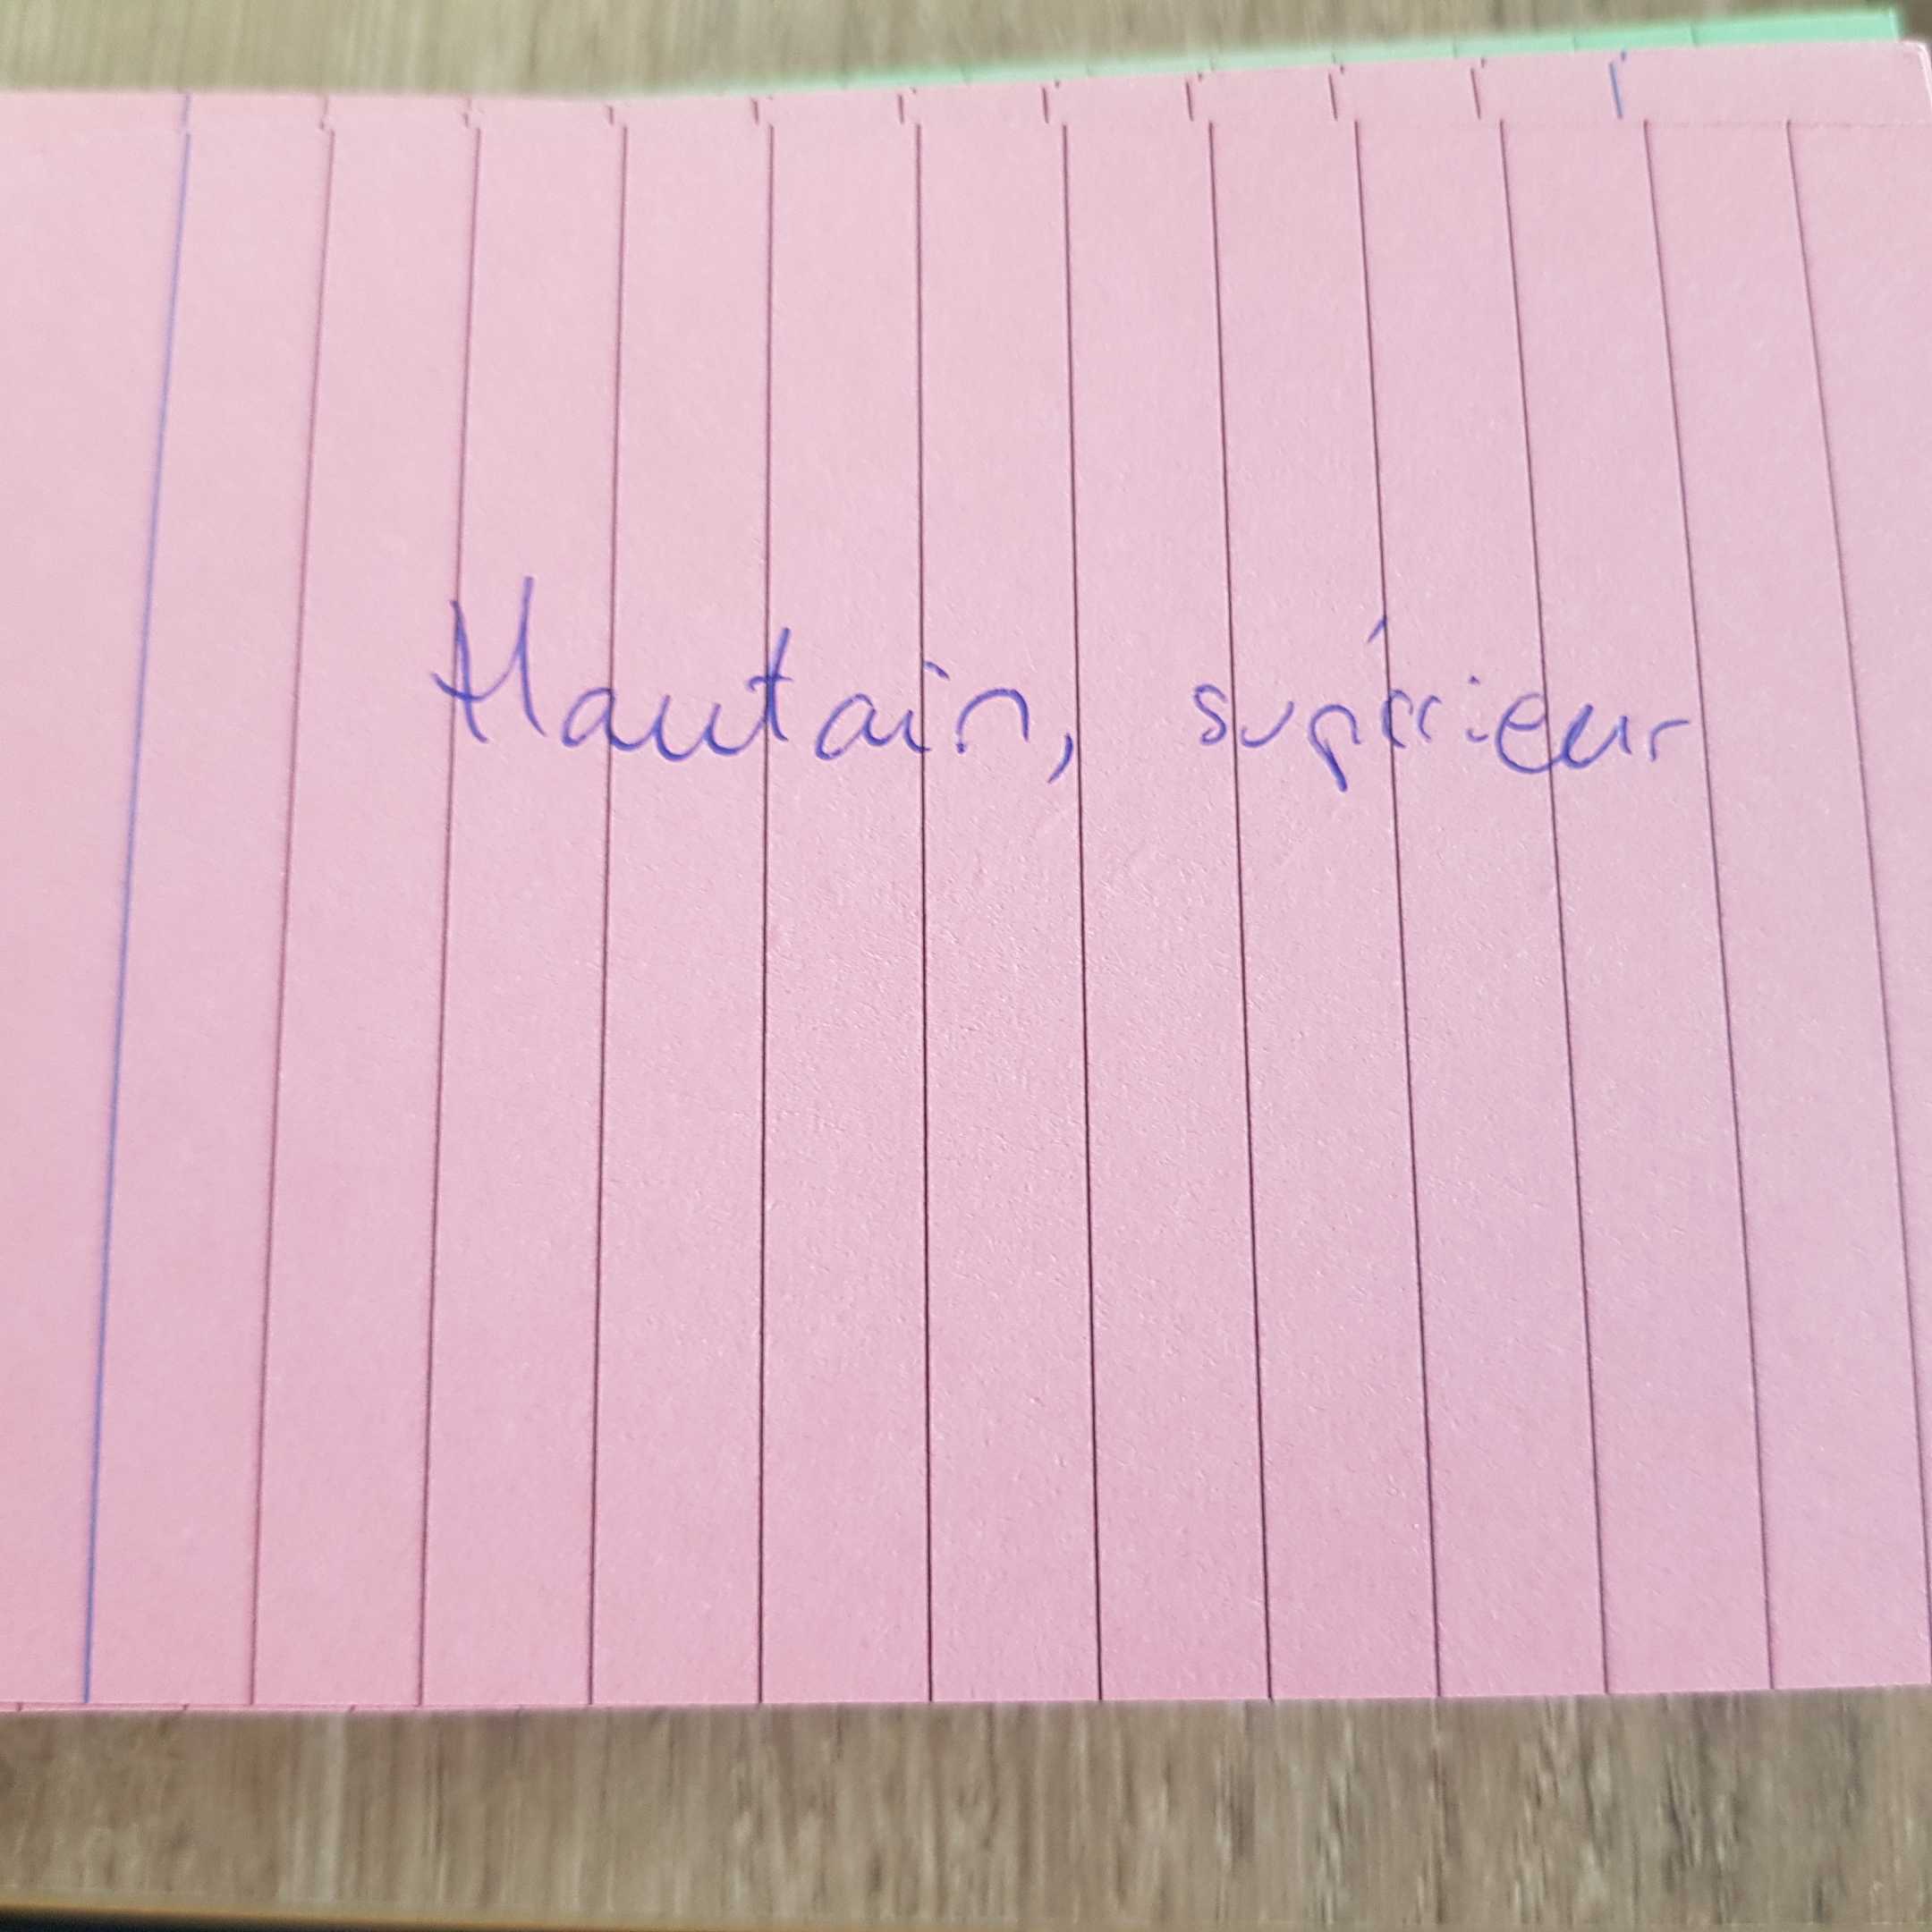 Hautain, supérieur